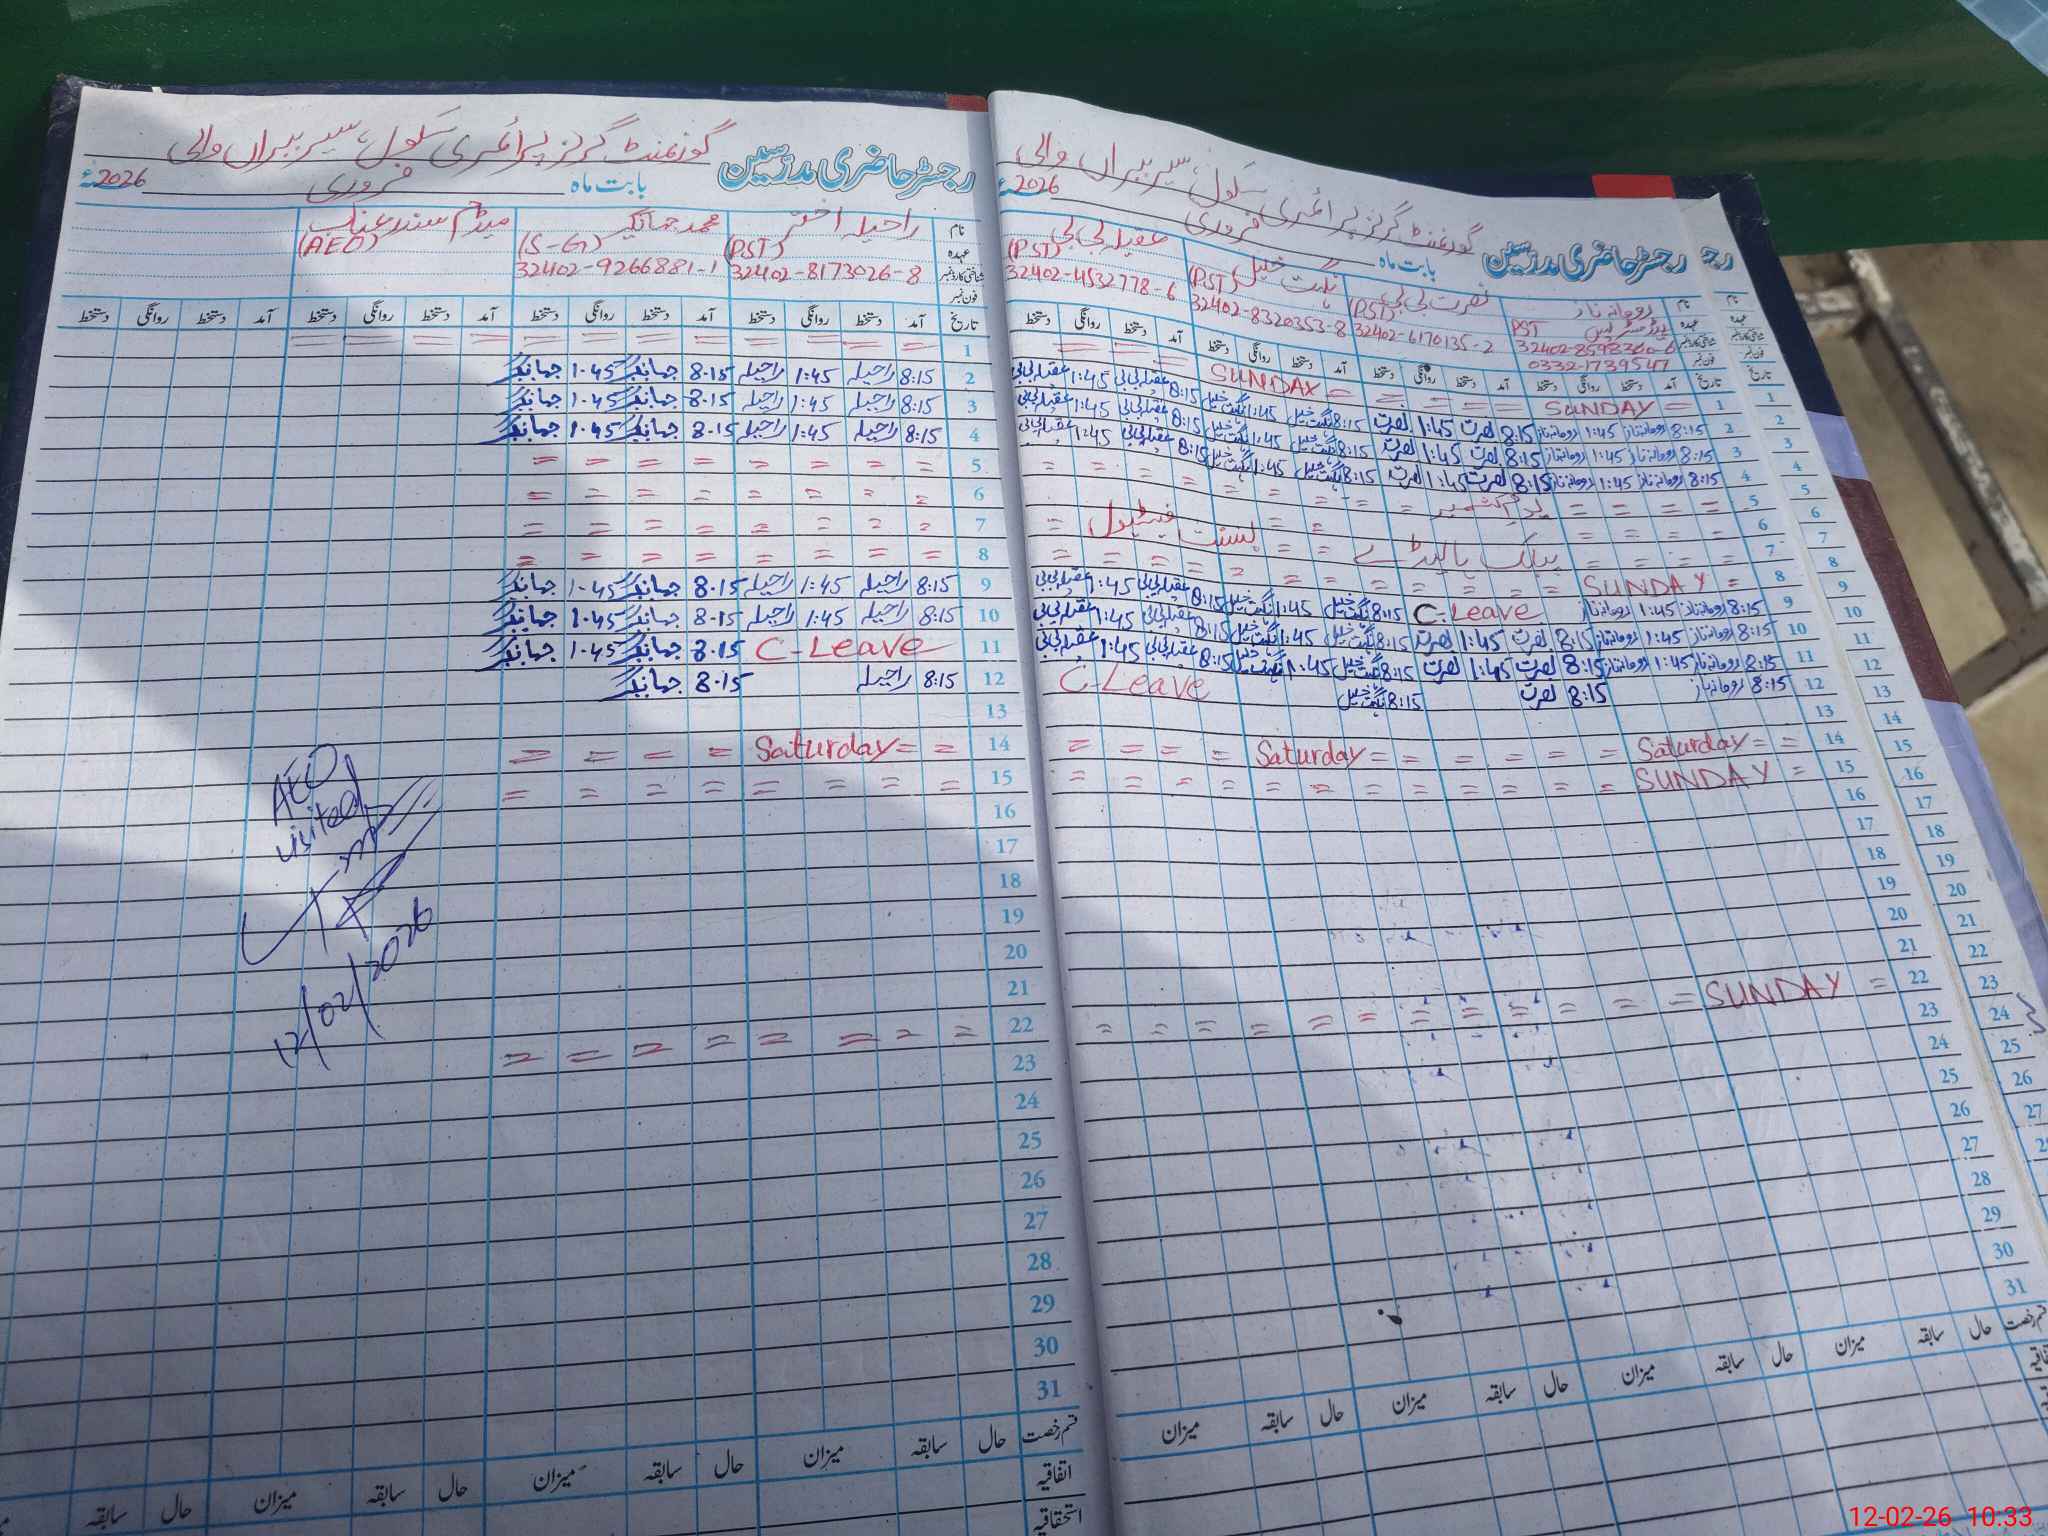 رجسٹر حاضری مدرسین گورنمنٹ گرلز پرائمری سکول، سیر پیراں والی
بابت ماہ فروری 2026ء
نام رومانہ ناز نصرت بی بی نگہت خیل عقیلہ بی بی
عہدہ PST (PST) (PST) (PST)
شناختی کارڈ نمبر 32402-6170135-2 32402-8320353-8 32402-4532778-6
فون نمبر 0332-1739547
تاریخ آمد دستخط روانگی دستخط آمد دستخط روانگی دستخط آمد دستخط روانگی دستخط آمد دستخط روانگی دستخط
1 = SUNDAY = = = = SUNDAY = = =
2 8:15 رومانہ ناز 1:45 رومانہ ناز 8:15 نصرت 1:45 نصرت 8:15 نگہت خیل 1:45 نگہت خیل 8:15 عقیلہ بی بی 1:45 عقیلہ بی بی
3 8:15 رومانہ ناز 1:45 رومانہ ناز 8:15 نصرت 1:45 نصرت 8:15 نگہت خیل 1:45 نگہت خیل 8:15 عقیلہ بی بی 1:45 عقیلہ بی بی
4 8:15 رومانہ ناز 1:45 رومانہ ناز 8:15 نصرت 1:45 نصرت 8:15 نگہت خیل 1:45 نگہت خیل 8:15 عقیلہ بی بی 1:45 عقیلہ بی بی
5 = = = = یوم کشمیر = = = = = = =
6 = = = = پبلک ہالیڈے = = بسنت فیسٹیول =
7 = = = = = = = = = =
8 = SUNDAY = = = = = = = = =
9 8:15 رومانہ ناز 1:45 رومانہ ناز C-Leave 8:15 نگہت خیل 1:45 نگہت خیل 8:15 عقیلہ بی بی 1:45 عقیلہ بی بی
10 8:15 رومانہ ناز 1:45 رومانہ ناز 8:15 نصرت 1:45 نصرت 8:15 نگہت خیل 1:45 نگہت خیل 8:15 عقیلہ بی بی 1:45 عقیلہ بی بی
11 8:15 رومانہ ناز 1:45 رومانہ ناز 8:15 نصرت 1:45 نصرت 8:15 نگہت خیل 1:45 نگہت خیل 8:15 عقیلہ بی بی 1:45 عقیلہ بی بی
12 8:15 رومانہ ناز 8:15 نصرت 8:15 نگہت خیل C-Leave
13
14 = = Saturday = = = = = Saturday = = = =
15 = SUNDAY = = = = = = = = = =
16
17
18
19
20
21
22 = SUNDAY = = = = = = = = = = =
23
24
25
26
27
28
29
30
31
قسم رخصت حال سابقہ میزان حال سابقہ میزان حال سابقہ میزان حال سابقہ میزان
رجسٹر حاضری مدرسین گورنمنٹ گرلز پرائمری سکول، سیر پیراں والی
بابت ماہ فروری 2026ء
نام راحیلہ اختر محمد جہانگیر میڈم سندر عناب
عہدہ (PST) (S-G) (AEO)
شناختی کارڈ نمبر 32402-8173026-8 32402-9266881-1
فون نمبر
تاریخ آمد دستخط روانگی دستخط آمد دستخط روانگی دستخط آمد دستخط روانگی دستخط آمد دستخط روانگی دستخط
1 = = = = = = = = = = = =
2 8:15 راحیلہ 1:45 راحیلہ 8.15 جہانگیر 1.45 جہانگیر
3 8:15 راحیلہ 1:45 راحیلہ 8.15 جہانگیر 1.45 جہانگیر
4 8:15 راحیلہ 1:45 راحیلہ 8.15 جہانگیر 1.45 جہانگیر
5 = = = = = = = =
6 = = = = = = = =
7 = = = = = = = =
8 = = = = = = = =
9 8:15 راحیلہ 1:45 راحیلہ 8.15 جہانگیر 1.45 جہانگیر
10 8:15 راحیلہ 1:45 راحیلہ 8.15 جہانگیر 1.45 جہانگیر
11 C-Leave 8.15 جہانگیر 1.45 جہانگیر
12 8:15 راحیلہ 8.15 جہانگیر
13
14 = = Saturday = = = =
15 = = = = = = = =
16
17
18
19
20
21
22 = = = = = = = =
23
24
25
26
27
28
29
30
31
AEO
visited
12/02/2026
قسم رخصت حال سابقہ میزان حال سابقہ میزان حال سابقہ میزان حال سابقہ
اتفاقیہ
استحقاقیہ
12-02-26 10:33